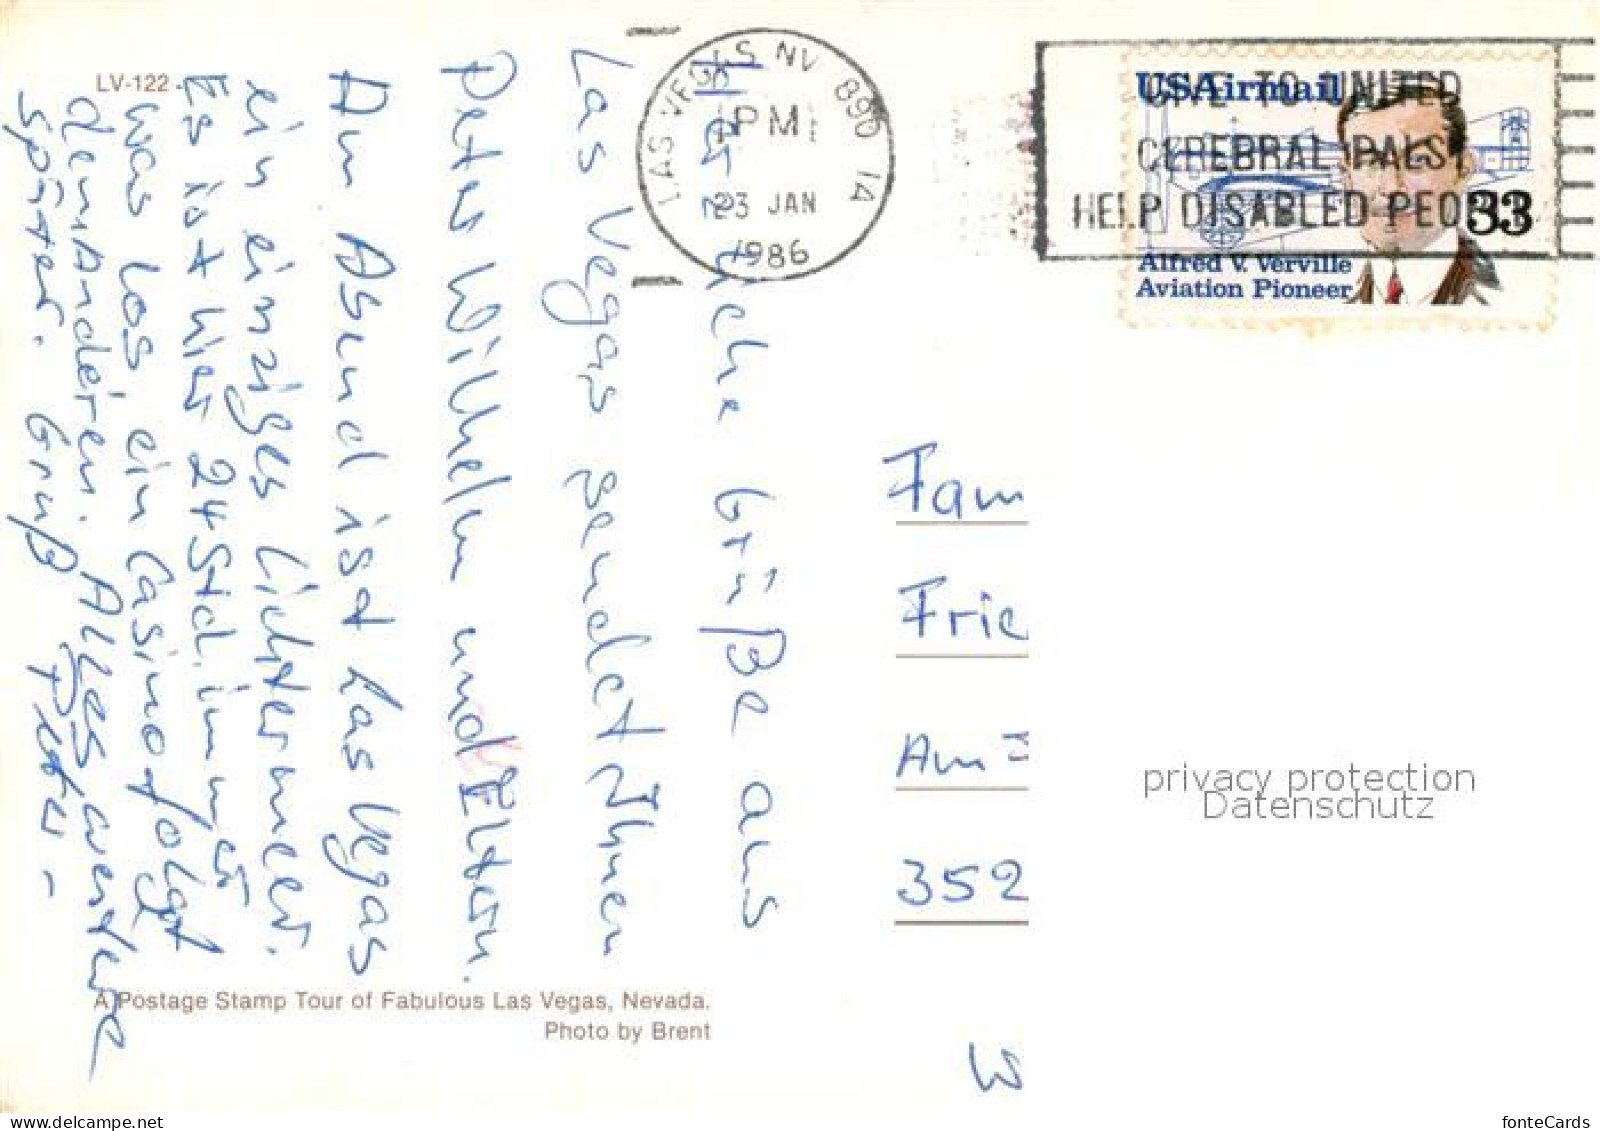 LV-122
Herzliche Grüße aus
Las Vegas sendet Ihnen
Peter Wilhelm und Eltern.
Am Abend ist Las Vegas
ein einziges Lichtermeer.
Es ist hier 24 Std. immer
was los, ein Casino folgt
dem Anderen. Alles weitere
später. Gruß Peter –
A Postage Stamp Tour of Fabulous Las Vegas, Nevada.
Photo by Brent
LAS VEGAS NV 890 14
PM
23 JAN
1986
GIVE TO UNITED
CEREBRAL PALSY
HELP DISABLED PEOPLE
USAirmail
33
Alfred V. Verville
Aviation Pioneer
Fam
Frie
Am
352
W
privacy protection
Datenschutz
www.delcampe.net
fonteCards